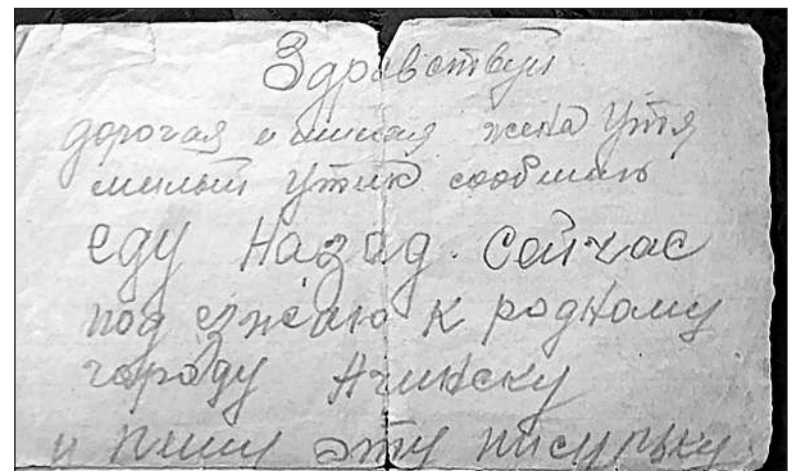 Здравствуй
дорогая и милая жена Утя
милый Утик сообщаю
еду Назад. Сейчас
под езжаю к родному
городу Ачинску
и пишу эту писульку